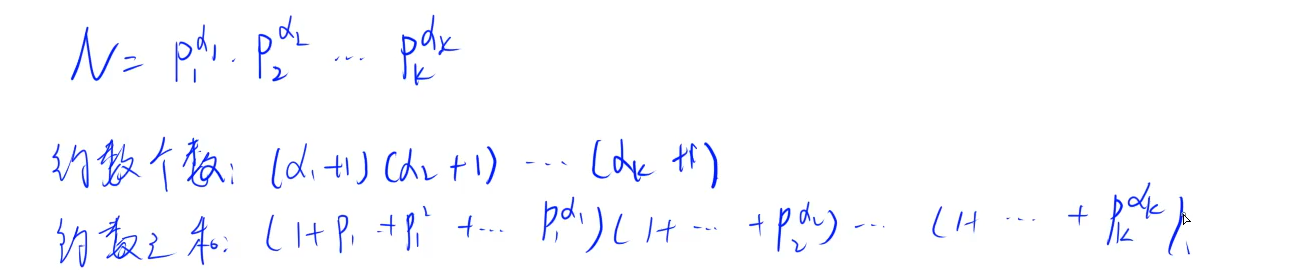 N = p₁^α₁ · p₂^α₂ ... p_k^α_k
约数个数: (α₁+1)(α₂+1) ... (α_k+1)
约数之和: (1+p₁+p₁²+... p₁^α₁)(1+...+p₂^α₂) ... (1+ ... + p_k^α_k)